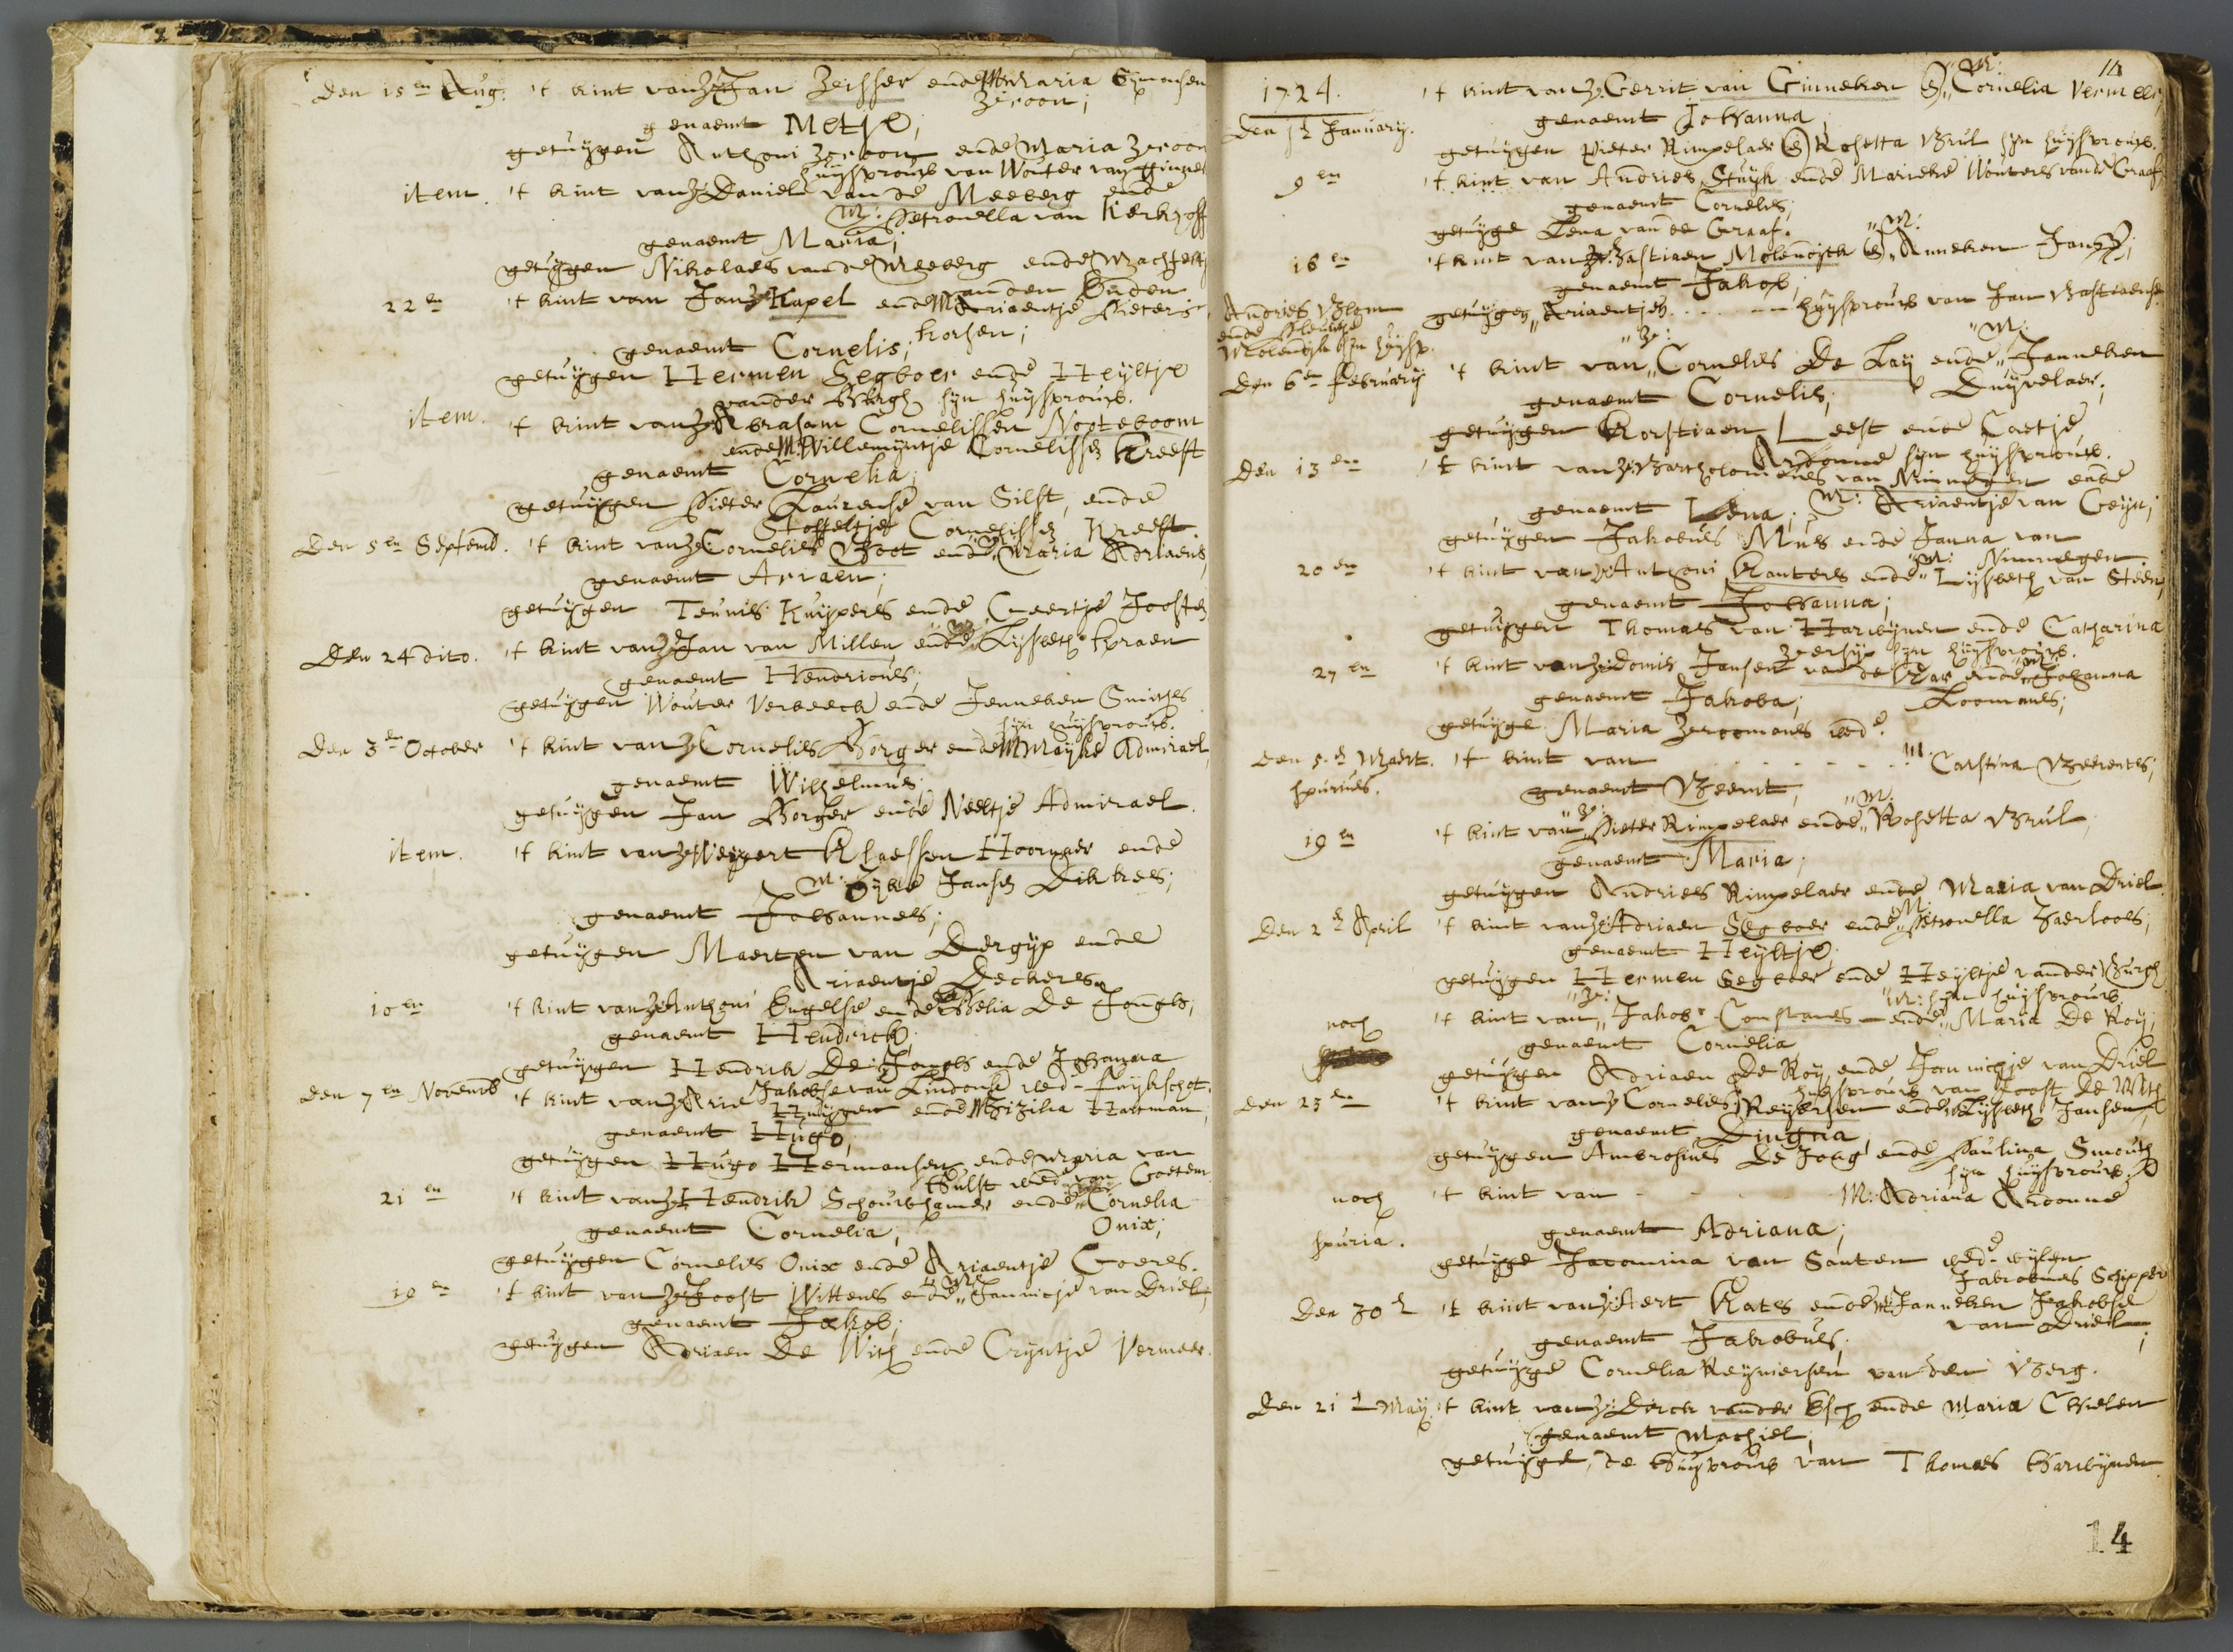 den 15en Aug. 't kint van V: Jan Visser ende M: Maria Symonsen
Veroon;
genaemt Metje;
getuygen Anthoni Veroon ende Maria Veroon
huysvrouw van Wouter van Ginne
item. 't kint van V: Daniel vande Meeberg ende
M: Petronella van Kerkhoff
genaemt Maria;
getuygen Nikolaes vande Meeberg ende Machtelt
vanden
22en 't kint van Jan Kapel ende M: Ariaentje Pieters
genaemt Cornelis;
getuygen Hermen Segboer ende Heyltje
vander Burgh syn huysvrouw.
item. 't kint van V: Abraham Cornelissen Nooteboom
ende M: Willemyntje Cornelisse Kreeft
genaemt Cornelia;
getuygen Pieter Laurense van Gilst, ende
Stoffeltje Cornelisse Kreeft
Den 5en Septemb. 't kint van V: Cornelis Boot ende Maria Adriaens,
genaemt Ariaen;
getuygen Teunis Kuypers ende Geertje Jooste
Den 24 dito. 't kint van V: Jan van Millen ende Lysbeth Kraen
genaemt Hendricus;
getuygen Wouter Verbeeck ende Jenneken Smits
syn huysvrouw.
Den 3en October 't kint van V: Cornelis Borger ende M: Mayke Admirael,
genaemt Wilhelmus;
getuygen Jan Borger ende Neeltje Admirael.
item. 't kint van V: Weygert Klaessen Hoornaer ende
M: Sijke Janse Dikkes;
genaemt Johannes;
getuygen Maerten van Dergyp ende
Ariaentje Deckers.
10en 't kint van V: Anthoni Engelse ende Celia De Jongh;
genaemt Hendrick;
getuygen Hendrik De Jongh ende Johanna
Jakobse van Lindonk wed.
Den 7en Novemb 't kint van V: Arie Huygen ende M: Zizilia Hartman,
genaemt Hugo;
getuygen Hugo Hermansen ende Maria van
Hulst wed. van
21en 't kint van V: Hendrik Schouwhamer ende Cornelia
genaemt Cornelia; Onix;
getuygen Cornelis Onix ende Ariaentje Goeres.
19en 't kint van V: Joost Wittens ende M: Jannitje van Driel;
genaemt Jakob;
getuygen Adriaen De With ende Cryntje Vermeer.
14
1724. 't kint van V: Gerrit van Ginneken & M: Cornelia Vermeer;
den 1en January. genaemt Johanna;
getuygen Pieter Rimpelaer & Rosetta Brul syn huysvrouw.
9en 't kint van Andries Stuyk ende Marieke Wouters vande Graaf,
genaemt Cornelis;
getuyge Lena van de Graaf.
16en 't kint van V: Bastiaen Molendyck & M: Anneken Jans;
genaemt Jakob;
getuygen Ariaentje - - - huysvrouw van Jan Bastiaense
Andries Blom
ende
Molendyk syn huysv.
Den 6en February 't kint van V: Cornelis De Lay ende M: Janneken
genaemt Cornelis; Duyvelaer;
getuygen Korstiaen Leest ende Caetje
Ardonne syn huysvrouw.
Den 13en 't kint van V: Bartholomeus van Nimwegen ende
genaemt Lena; M: Ariaentje van Geyn;
getuygen Jakobus Mus ende Janna van
Nimwegen
20en 't kint van V: Anthoni Kanters ende M: Lysbeth van Steen,
genaemt Johanna;
getuygen Thomas van Harwynen ende Catharina
syn huysvrouw.
27en 't kint van V: Domis Jansen van de ende M: Johanna
genaemt Jakoba; Loomans;
getuyge Maria Veroomans wede.
Den 5en Maert. 't kint van - - - - M: Carstina Beerents;
spurius. genaemt Beernt;
19en 't kint van V: Pieter Rimpelaer ende M: Rosetta Brul,
genaemt Maria;
getuygen Andries Rimpelaer ende Maria van Driel.
Den 2en April 't kint van V: Adriaen Segboer ende M: Petronella Haerloos;
genaemt Heyltje,
getuygen Hermen Segboer ende Heyltje vander Burgh
syn huysvrouw.
noch 't kint van V: Jakob Constans ende M: Maria De Roy;
genaemt Cornelia
getuygen Adriaen De Roy ende Jannitje van Driel
huysvrouw van Joost De With
Den 23en 't kint van V: Cornelis Reyersen ende Lysbeth Jansen,
genaemt Dingna,
getuygen Ambrosius De Jong ende Paulina Smouth
syn huysvrouw.
noch 't kint van - - - M: Adriana Ardonne
spuria. genaemt Adriana;
getuyge Jacomina van Santen wede wylen
Jakobus Schipper
Den 30en 't kint van V: Aert Kats ende M: Janneken Jakobse
van Driel;
genaemt Jakobus;
getuyge Cornelia Reyniersen van den Berg.
Den 21en May. 't kint van V: Dirck vander Esch ende Maria Chielen
genaemt Machiel,
getuyge, de huysvrouw van Thomas Harwynen
14